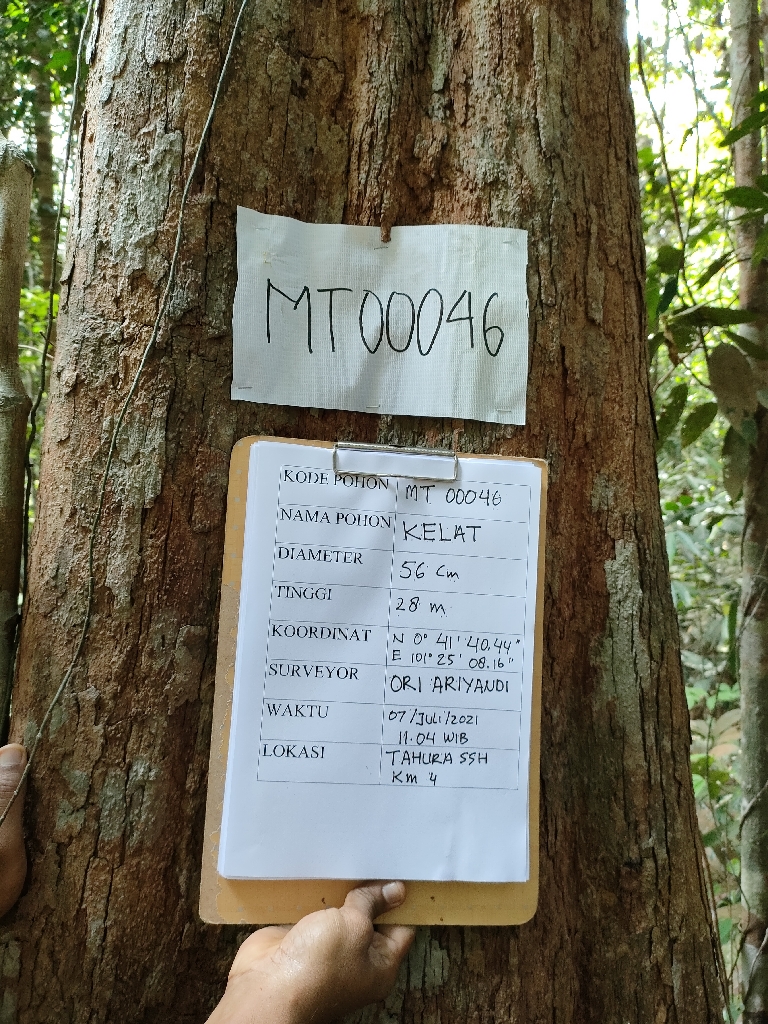 MT00046
KODE POHON MT 00046
NAMA POHON KELAT
DIAMETER 56 Cm
TINGGI 28 m
KOORDINAT N 0° 41' 40.44"
E 101° 25' 08.16"
SURVEYOR ORI ARIYANDI
WAKTU 07/JULI/2021
11.04 WIB
LOKASI TAHURA SSH
Km 4